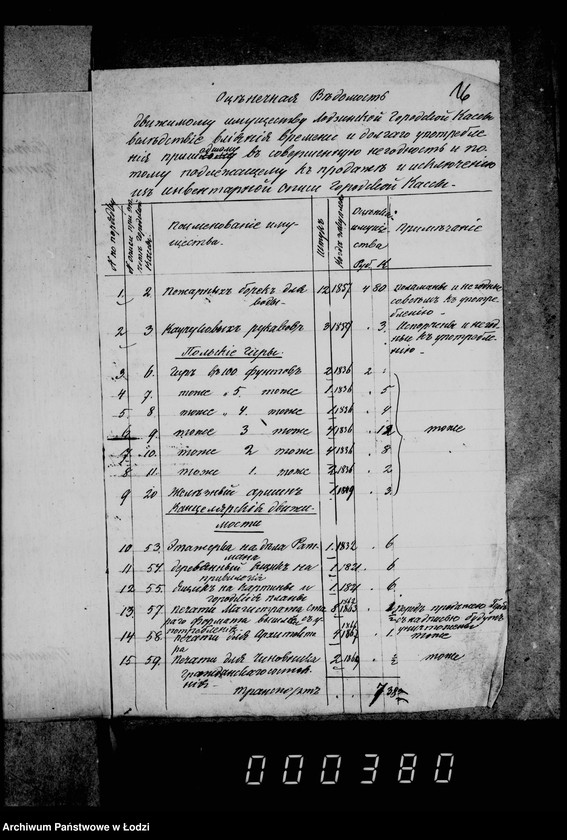 16
Оцѣночная Вѣдомость
движимому имуществу Лодзинской Городской Кассы
вслѣдствіе вліянія времени и долгаго употребле-
нія пришедшому въ совершенную негодность и по-
тому подлежащему къ продажѣ и исключенію
изъ инвентарной описи Городской Кассы.
№ по порядку
№ описи
Городской Кассы
Поименованіе иму-
щества.
Штукъ
Когда
Оцѣнка
имуще-
ства
Руб. К.
Примѣчаніе
1. 2. Пожарныхъ бочекъ для воды. 12 1857 4 80 поломаны и негодны
совсѣмъ къ употре-
бленію.
2 3 рукавовъ 3 1857 . 3. Испорчены и негод-
ные къ употребле-
нію.
Польскіе гири.
3 6. Гирь въ 100 фунтовъ 2 1836 2 .
4 7. тоже „ 5. тоже 1 1836 . 5
5 8 тоже „ 4. тоже 1 1836 . 4
6 9. тоже 3 тоже 4 1836 . 12 тоже
7. 10. тоже 2 тоже 4 1836 . 8
8 11. тоже 1. тоже 2 1836 . 2
9 20 Желѣзный аршинъ 1 1849 . 3.
Канцелярскіе движи-
мости
10. 53. Этажерка на дѣла Рат-
мана 1. 1832 . 6.
11. 54. Деревянный ящикъ на
1. 1821 6
12. 55. Ящикъ на
городскіе планы 1. 1821 6.
13. 57. Печати Магистрата ста-
раго формата вышли съ у-
потребленія 8 1863
будутъ
уничтожены
14. 58. Печати для Архитекто-
ра 4 1. тоже
15. 59. Печати для Чиновника
Гражданскаго состоя-
нія 2 ½ тоже
Транспортъ 7 38½
000380
Archiwum Państwowe w Łodzi